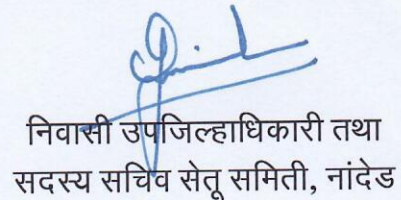 निवासी उपजिल्हाधिकारी तथा
सदस्य सचिव सेतू समिती, नांदेड